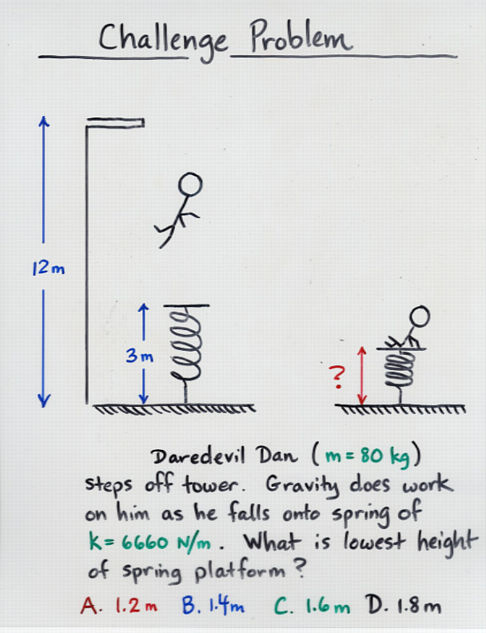 Challenge Problem
12m
3m
?
Daredevil Dan (m = 80 kg)
steps off tower. Gravity does work
on him as he falls onto spring of
k = 6660 N/m. What is lowest height
of spring platform?
A. 1.2m B. 1.4m C. 1.6m D. 1.8m